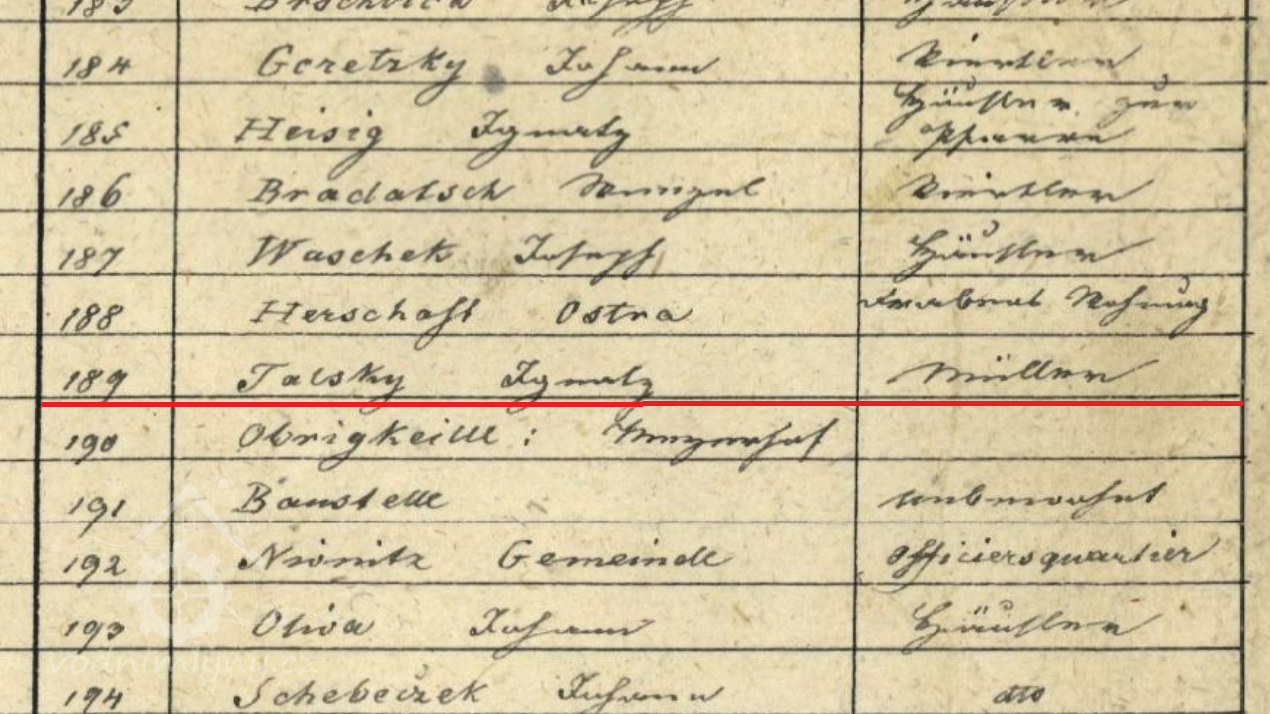 183 Joseph Häusler
184 Geretzky Johann Viertler
185 Heisig Ignatz Häusler zur Pfarre
186 Bradatsch Wenzel Viertler
187 Waschek Joseph Häusler
188 Herschaft Ostra Wohnung
189 Talsky Ignatz Müller
190 Obrigkeitl: Mayerhof
191 Baustelle unbewohnt
192 Niwnitz Gemeinde Officiersquartier
193 Oliva Johann Häusler
194 Schebeczek Johann dto
vodnimlyny.cz